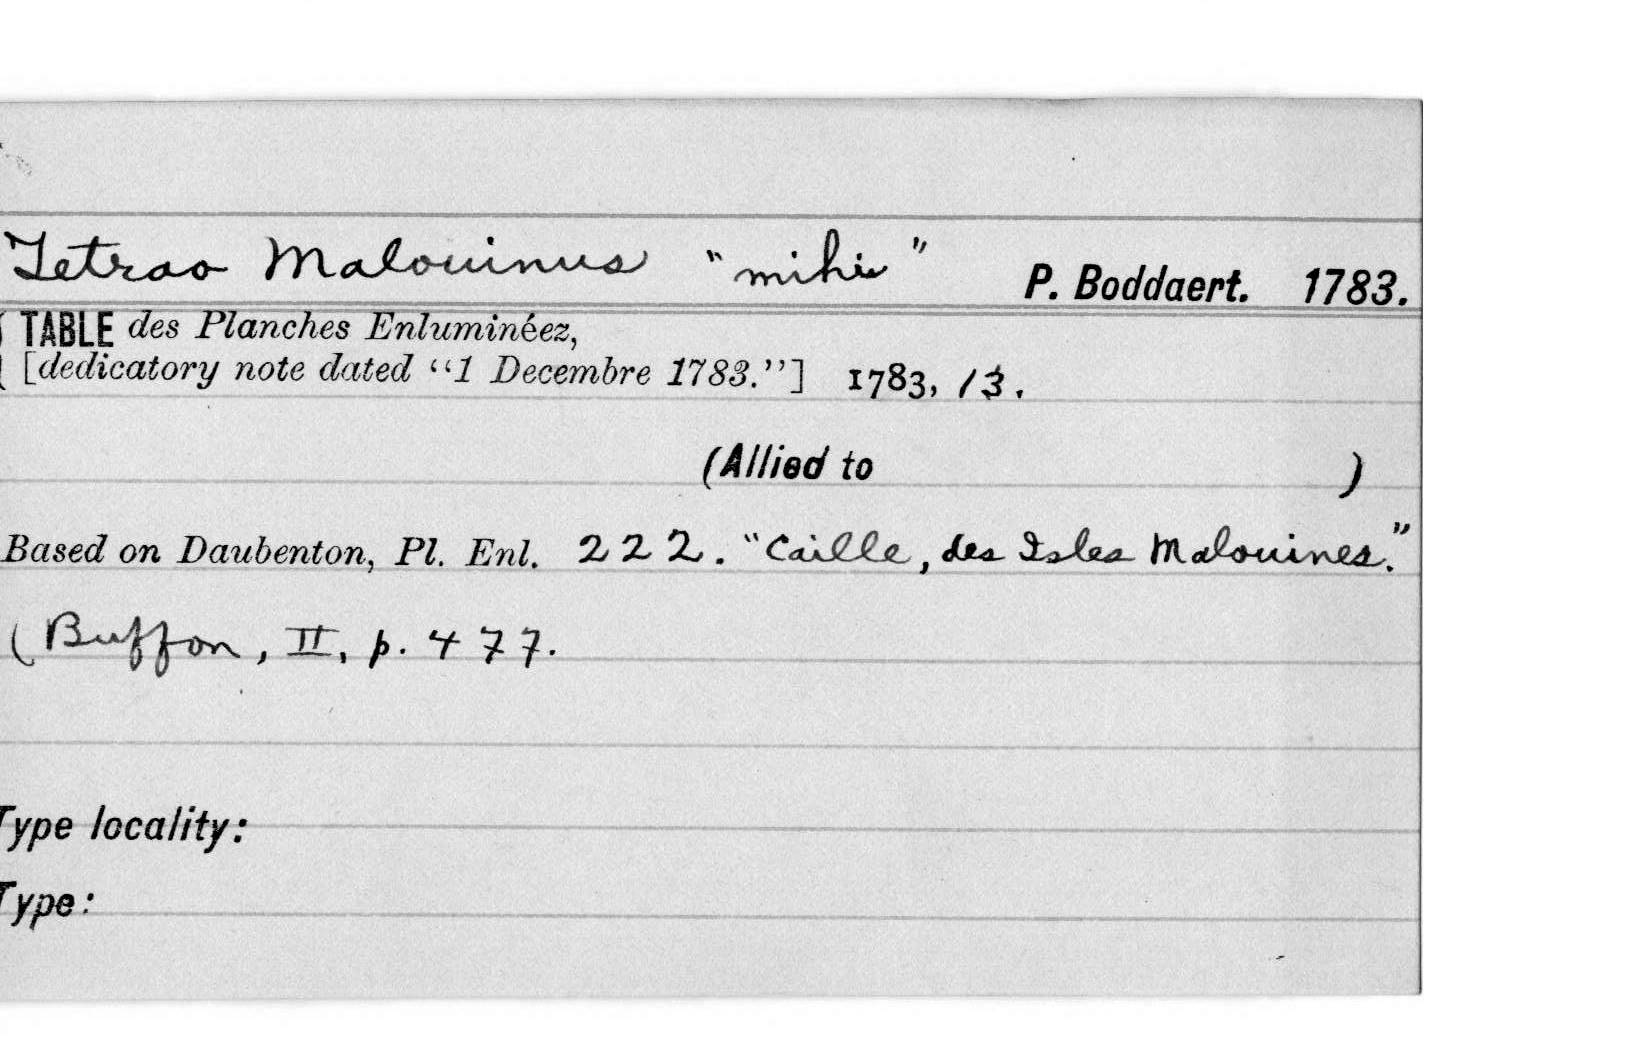 Tetrao Malouinus "mihi" P. Boddaert. 1783.
TABLE des Planches Enluminéez,
[dedicatory note dated "1 Decembre 1783."] 1783, 13.
(Allied to )
Based on Daubenton, Pl. Enl. 222. "Caille, des Isles Malouines."
(Buffon, II, p. 477.
Type locality:
Type: